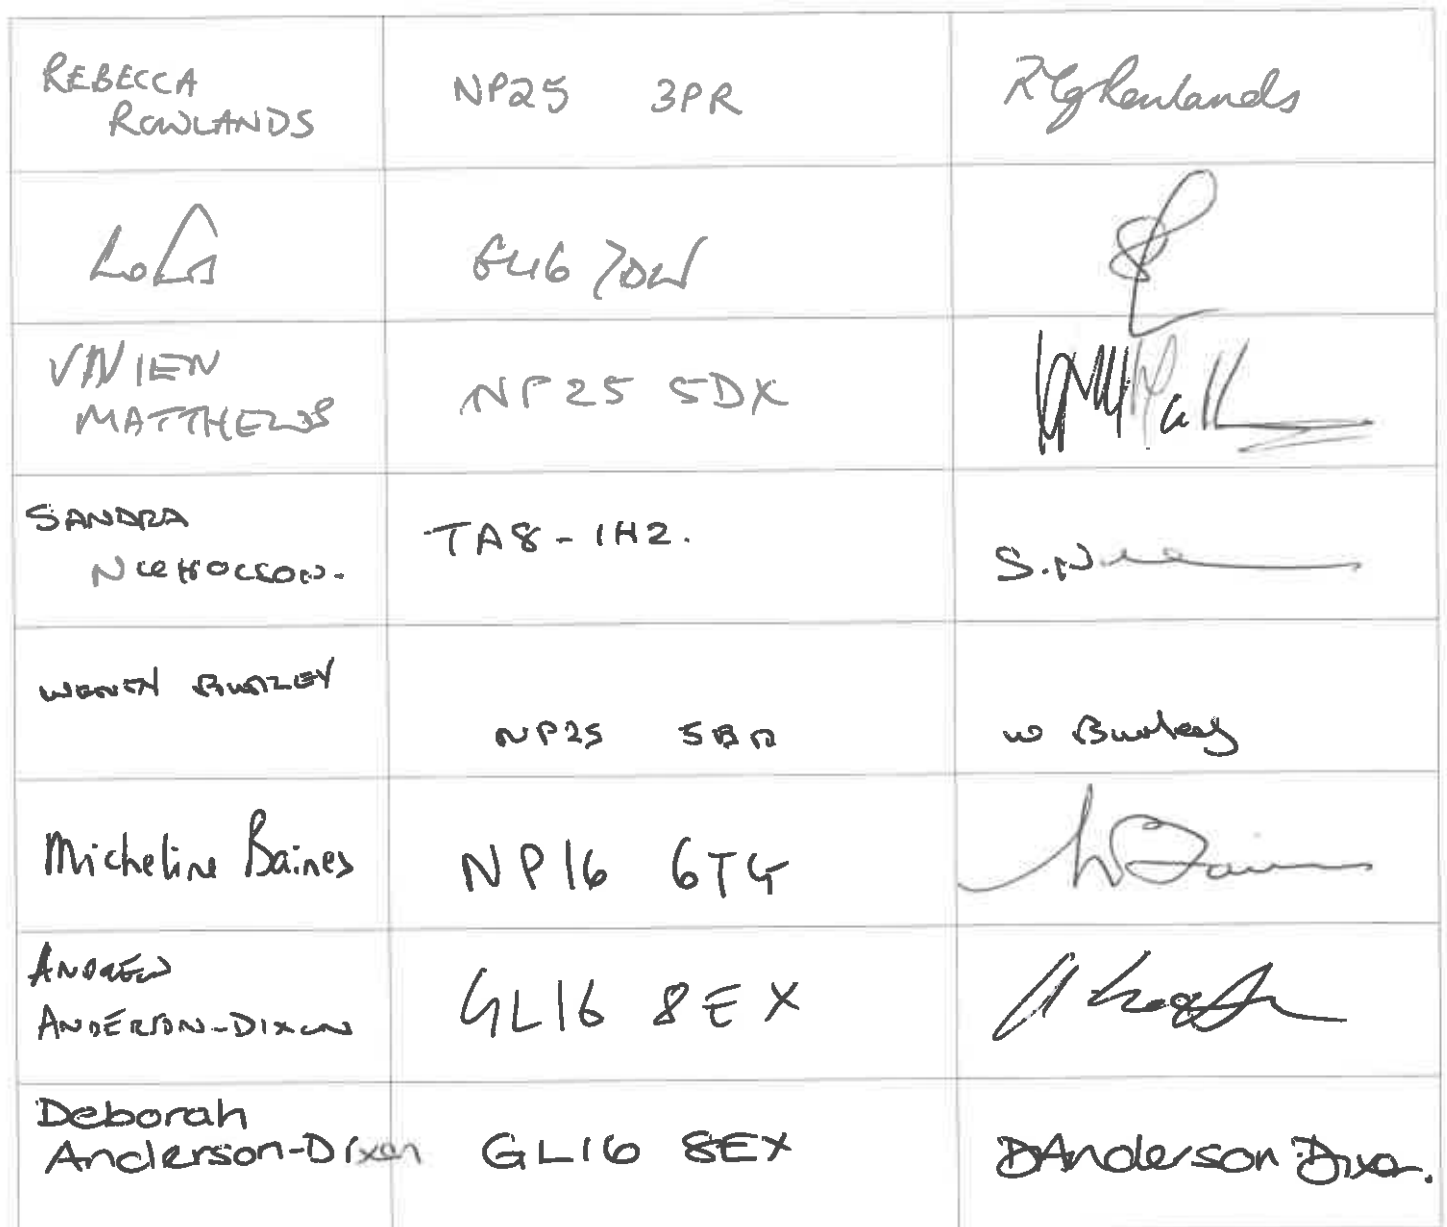 REBECCA
ROWLANDS
NP25 3PR
RG Rowlands
VIVIEN
MATTHEWS
NP25 5DX
SANDRA
TA8-1H2.
S.N
WENDY BURLEY
NP25 5BD
W Burley
Micheline Baines
NP16 6TG
ANDREW
ANDERSON-DIXON
GL16 8EX
Deborah
Anderson-Dixon
GL16 8EX
DAnderson-Dixon.